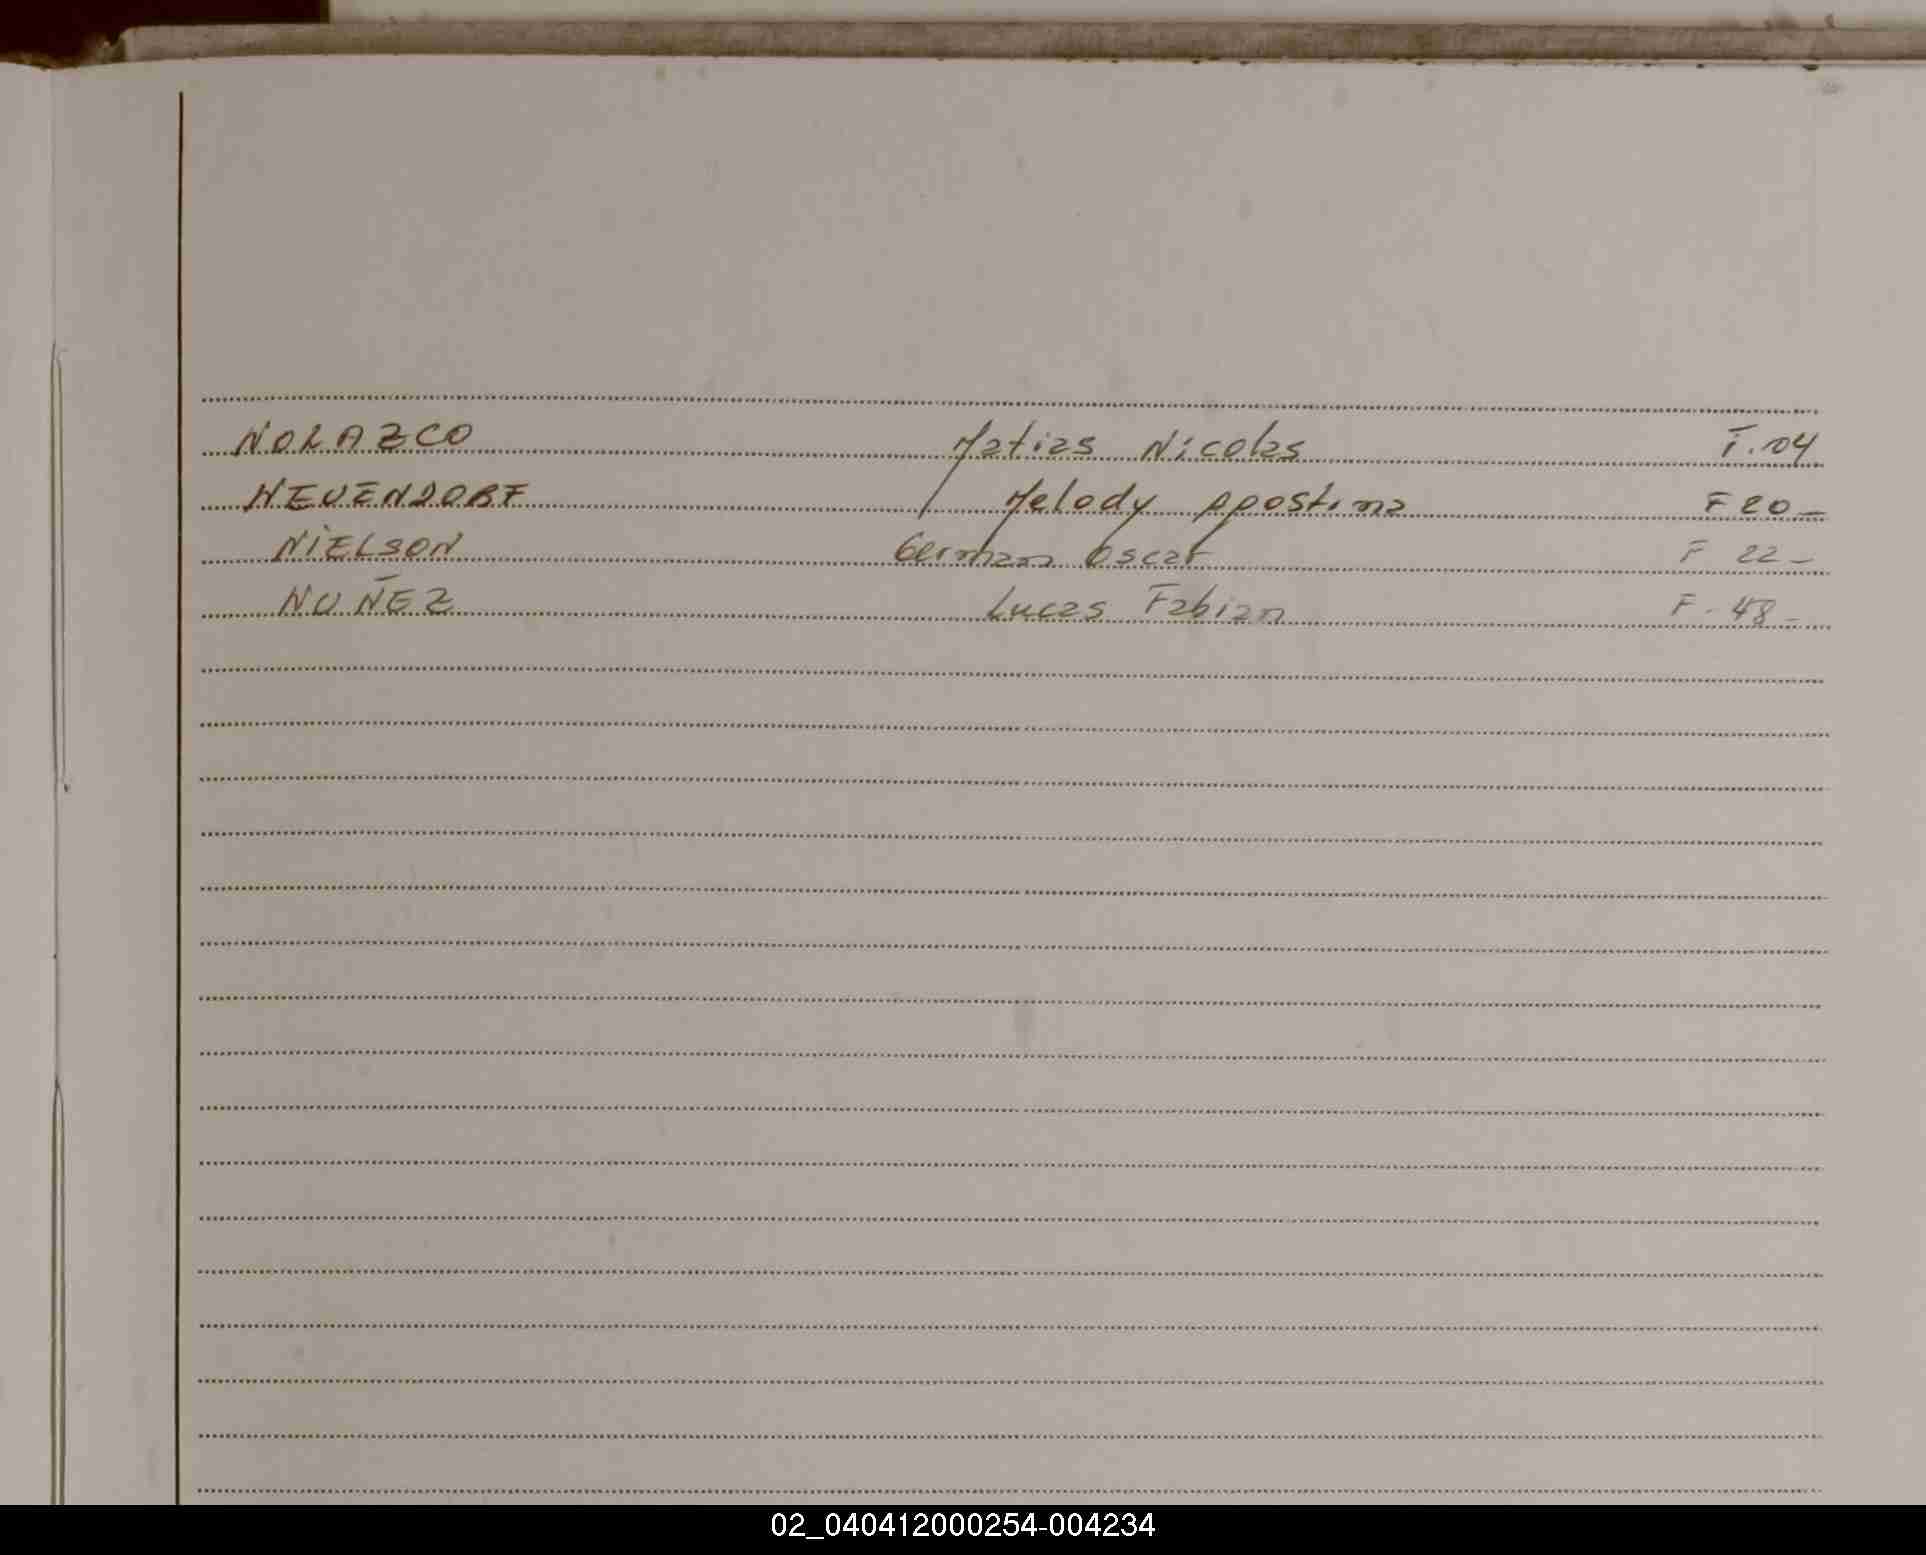 NOLAZCO Matias Nicolas F.04
NEUENDORF Melody Agostina F 20_
NIELSON German Oscar F 22_
NUÑEZ Lucas Fabian F. 48_
02_040412000254-004234